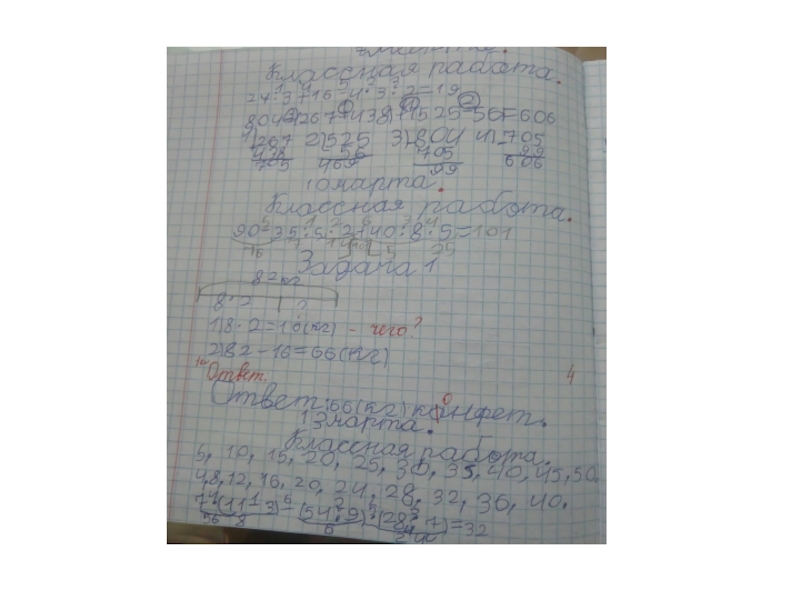 Классная работа.
24:3+16-4·3:2=19
804-(267+438)+(525-56)=606
1) 267 2) 525 3) 804 4) 705
438 56 705 99
705 469 99 606
10 марта.
Классная работа.
90-35:5·2+40:8·5=101
Задача 1
82кг
8·2 ?
1) 8·2=16(кг) - чего?
2) 82-16=66(кг)
Ответ. 4
Ответ: 66(кг) конфет.
13 марта.
Классная работа.
5, 10, 15, 20, 25, 30, 35, 40, 45, 50.
4, 8, 12, 16, 20, 24, 28, 32, 36, 40.
7·(11-3)-(54:9)·(28:7)=32
56 8 6 24 4